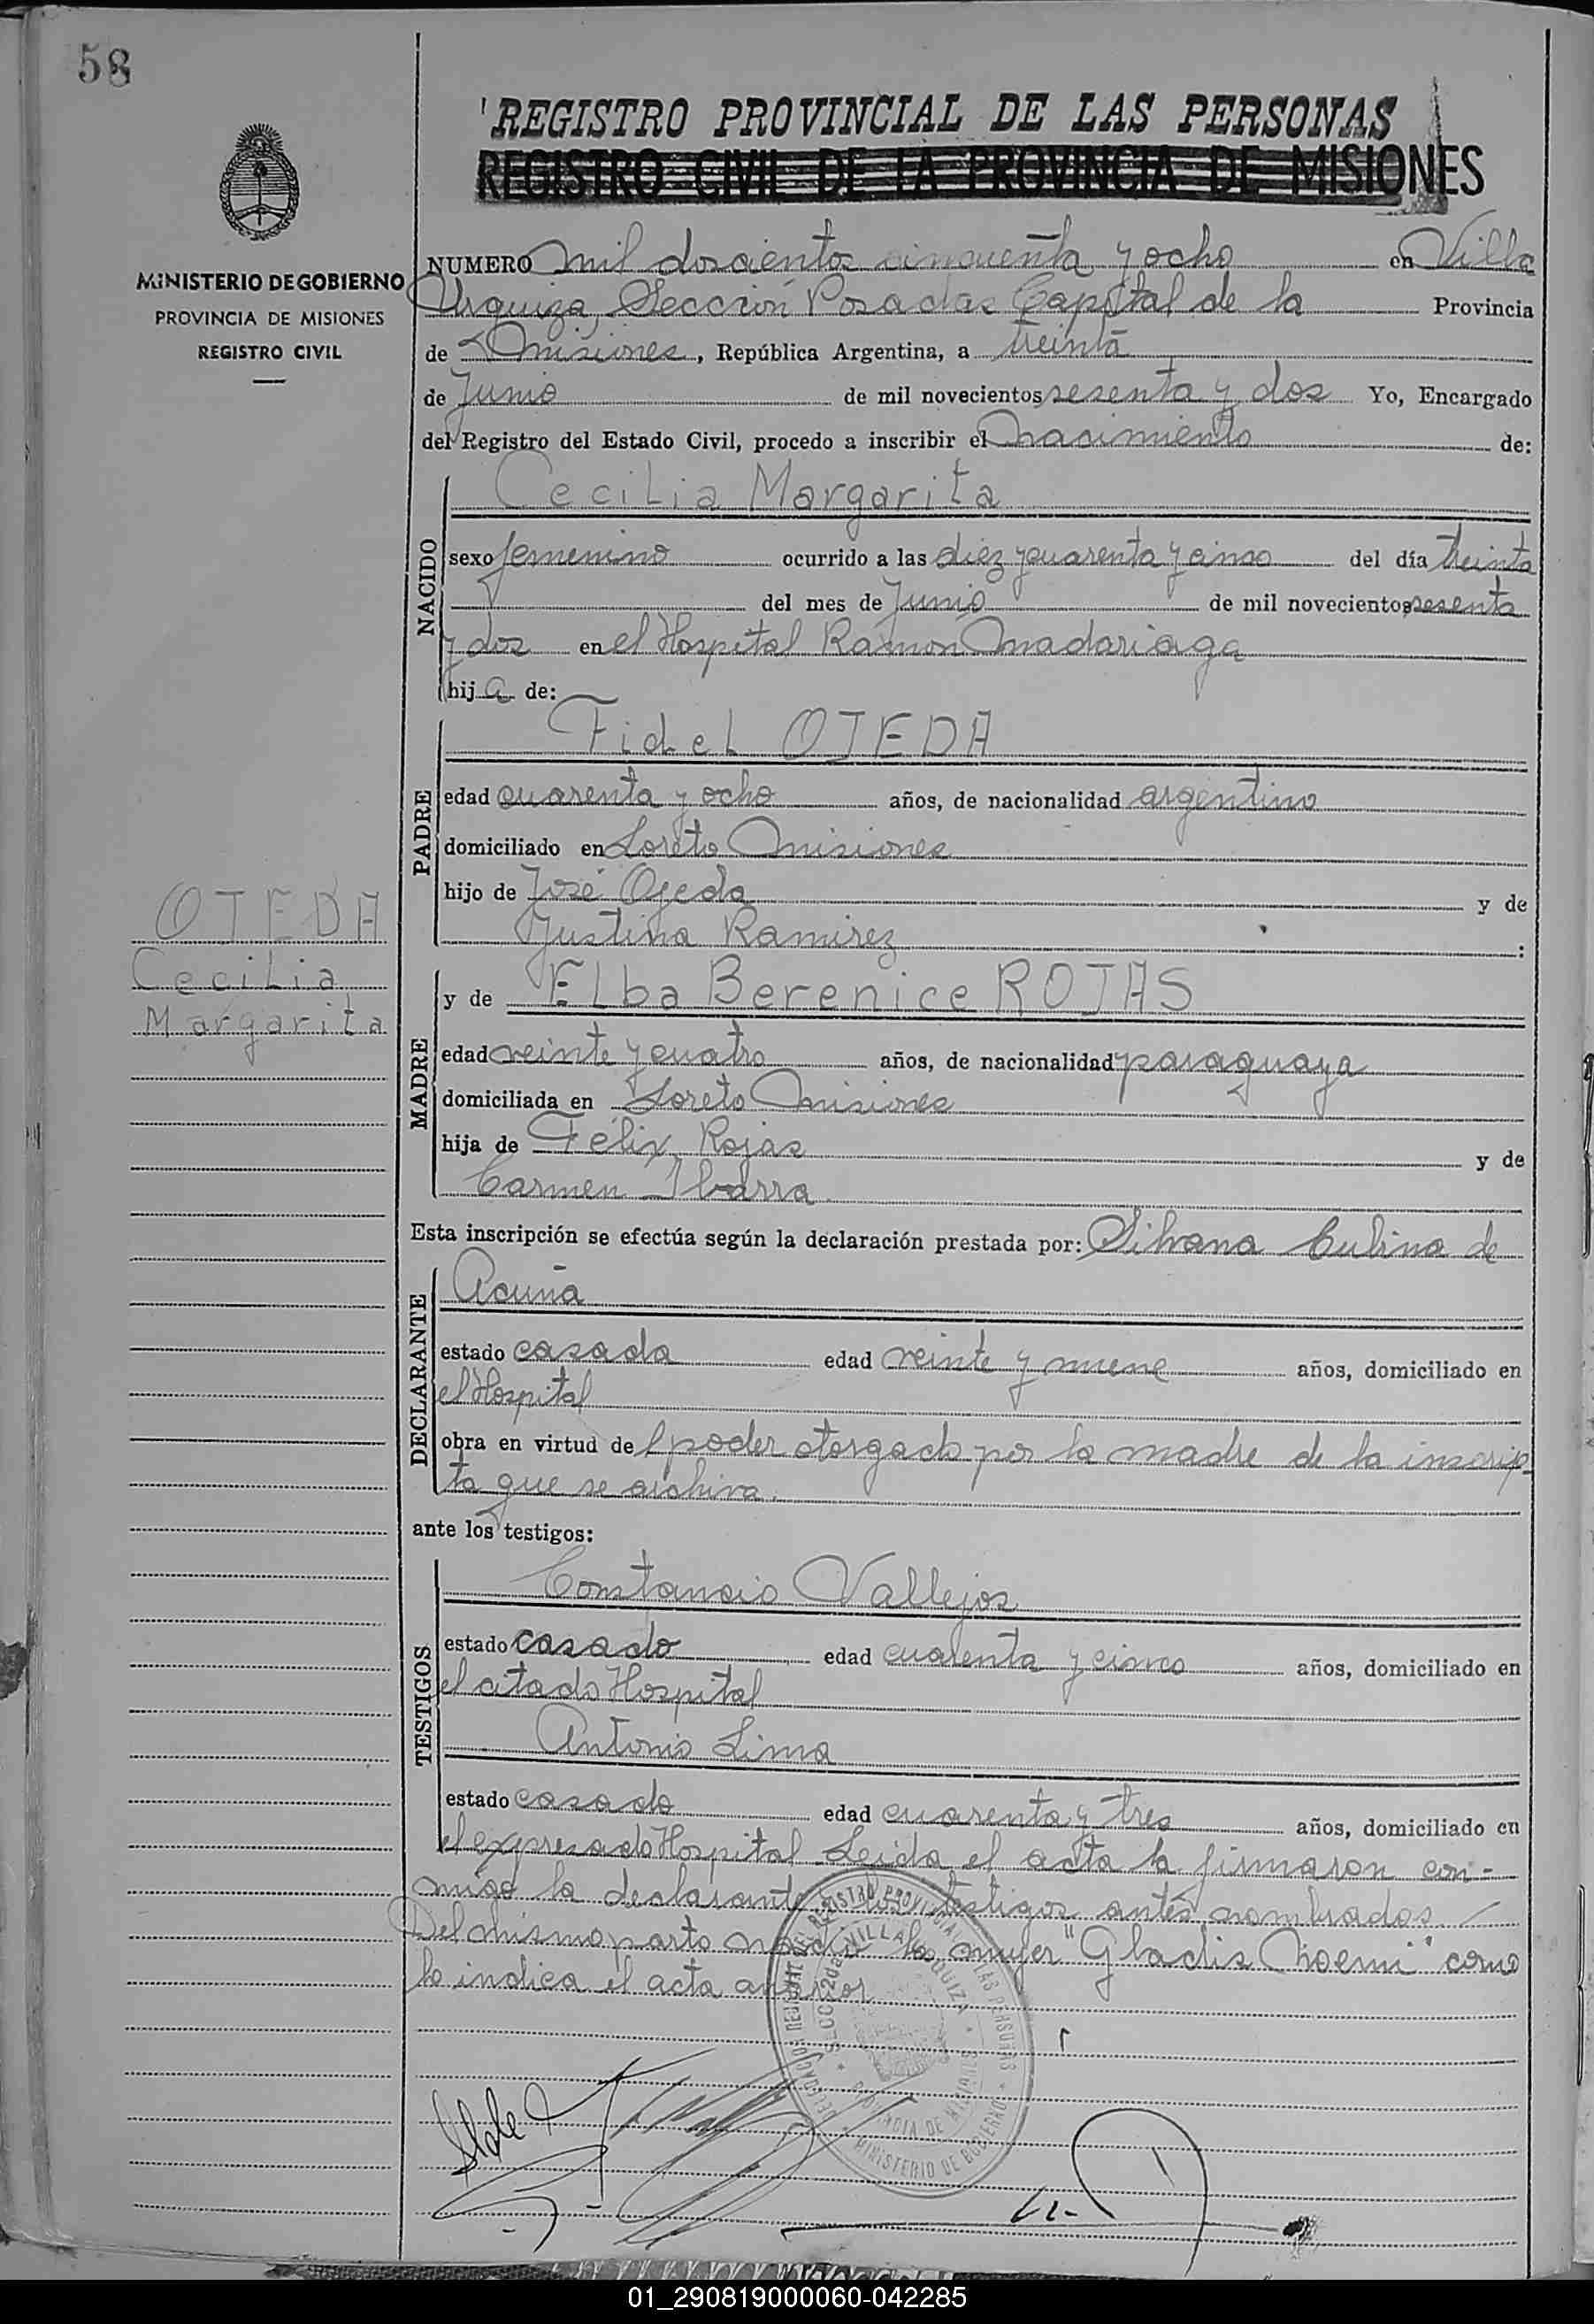 58
REGISTRO PROVINCIAL DE LAS PERSONAS
REGISTRO CIVIL DE LA PROVINCIA DE MISIONES
MINISTERIO DE GOBIERNO
PROVINCIA DE MISIONES
REGISTRO CIVIL
NUMERO mil doscientos cincuenta y ocho en Villa
Urquiza, Sección Posadas Capital de la Provincia
de Misiones, República Argentina, a treinta
de Junio de mil novecientos sesenta y dos Yo, Encargado
del Registro del Estado Civil, procedo a inscribir el nacimiento de:
NACIDO
Cecilia Margarita
sexo femenino ocurrido a las diez y cuarenta y cinco del día treinta
del mes de Junio de mil novecientos sesenta
y dos en el Hospital Ramon Madariaga
hija de:
PADRE
Fidel OJEDA
edad cuarenta y ocho años, de nacionalidad argentino
domiciliado en Loreto Misiones
hijo de José Ojeda y de
Justina Ramirez :
OJEDA
Cecilia
Margarita
MADRE
y de Elba Berenice ROJAS
edad veinte y cuatro años, de nacionalidad paraguaya
domiciliada en Loreto Misiones
hija de Félix Rojas y de
Carmen Ibarra
Esta inscripción se efectúa según la declaración prestada por: Silvana de
Acuña
DECLARANTE
estado casada edad veinte y nueve años, domiciliado en
el Hospital
obra en virtud del poder otorgado por la madre de la inscrip
ta que se archiva.
ante los testigos:
TESTIGOS
Constancio Vallejos
estado casado edad cuarenta y cinco años, domiciliado en
el citado Hospital
Antonio Lima
estado casado edad cuarenta y tres años, domiciliado en
el expresado Hospital Leída el acta la firmaron con-
migo la declarante los testigos antes nombrados.
Del mismo parto nació la mujer "Gladis Noemi" como
lo indica el acta anterior
VILLA URQUIZA
PROVINCIA DE MISIONES
MINISTERIO DE GOBIERNO
01_290819000060-042285